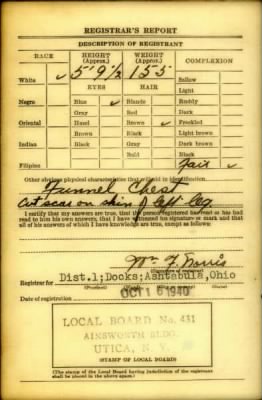 REGISTRAR'S REPORT
DESCRIPTION OF REGISTRANT
RACE HEIGHT (Approx.) WEIGHT (Approx.) COMPLEXION
5' 9 1/2 155
White ✓ Sallow
EYES HAIR Light
Negro Blue ✓ Blonde Ruddy
Gray Red Dark
Oriental Hazel Brown ✓ Freckled
Brown Black Light brown
Indian Black Gray Dark brown
Bald Black
Filipino Fair ✓
Other obvious physical characteristics that will aid in identification
Funnel Chest
Cut scar on shin of left leg
I certify that my answers are true; that the person registered has read or has had
read to him his own answers; that I have witnessed his signature or mark and that
all of his answers of which I have knowledge are true, except as follows:
Wm F. Norris
(Signature of registrar)
Registrar for Dist.1;Docks;Ashtabula,Ohio
(Precinct) (City or county) (State)
Date of registration OCT 16 1940
LOCAL BOARD No. 431
AINSWORTH BLDG.
UTICA, N. Y.
STAMP OF LOCAL BOARD
(The stamp of the Local Board having jurisdiction of the registrant
shall be placed in the above space.)